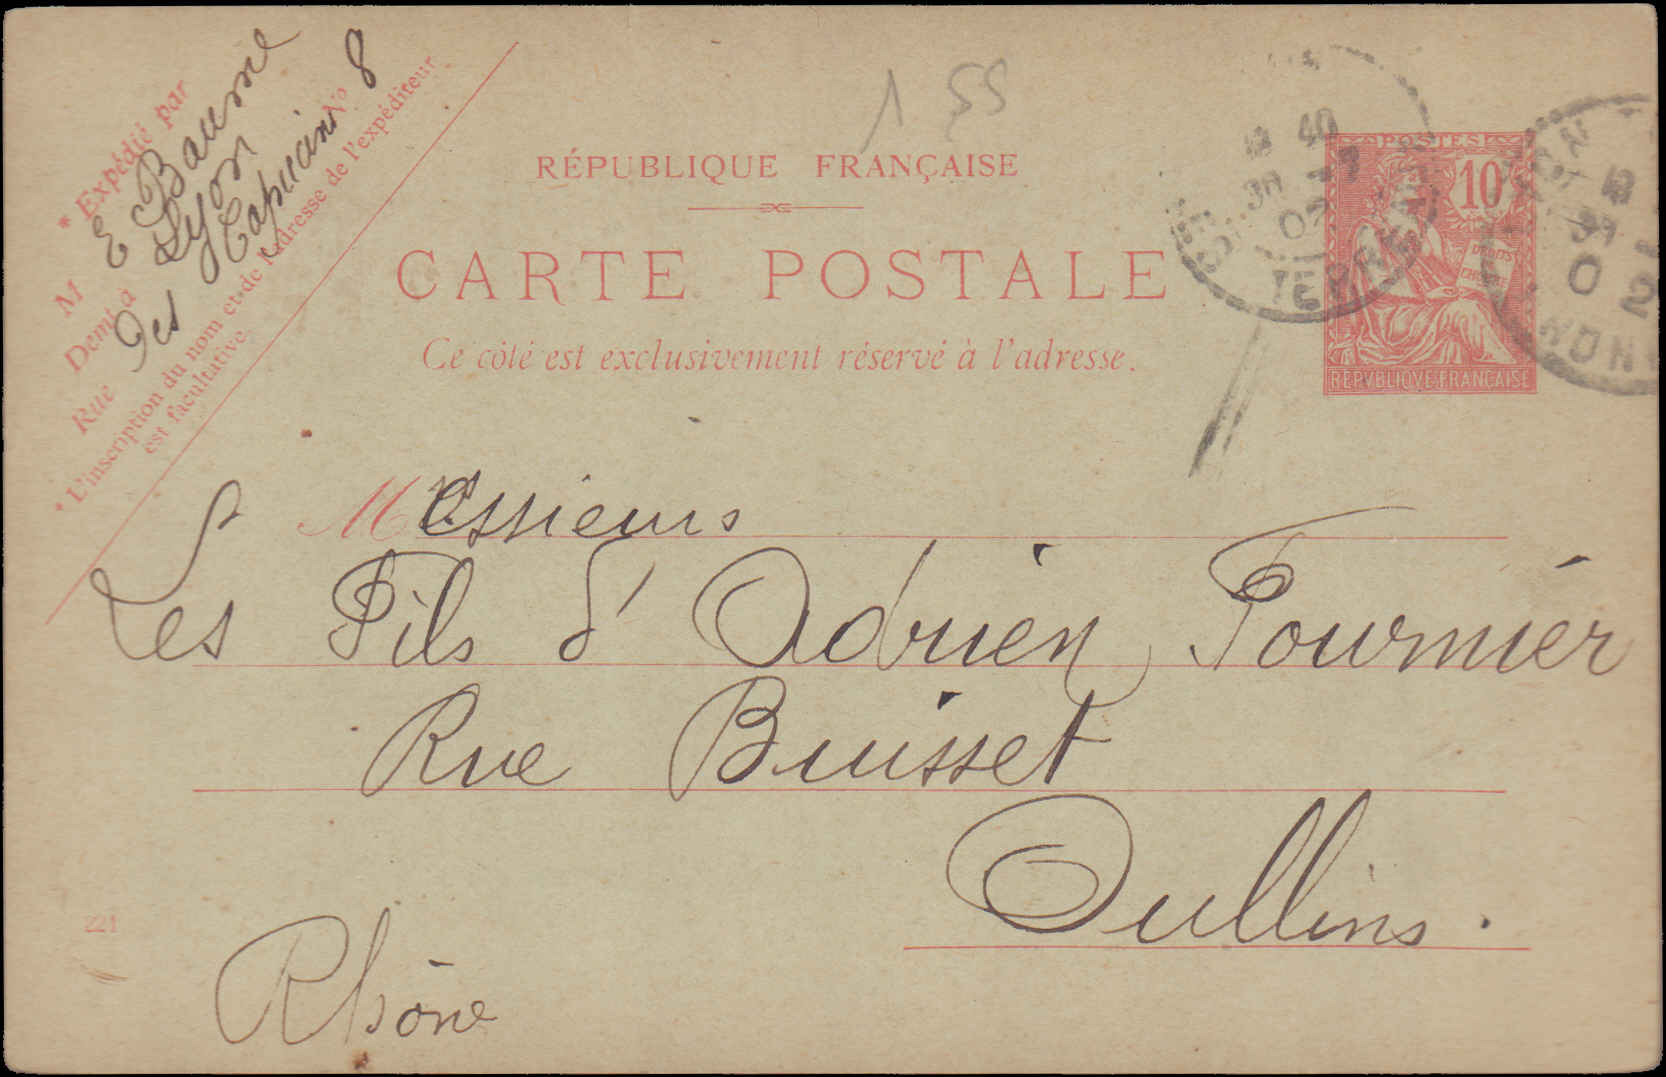 * Expédié par
M E Baume
Demt à Lyon
Rue des Capucins No 8
* L'inscription du nom et de l'adresse de l'expéditeur
est facultative.
1 55
RÉPUBLIQUE FRANÇAISE
CARTE POSTALE
Ce côté est exclusivement réservé à l'adresse.
POSTES
10
DROITS
DE
REPVBLIQVE FRANCAISE
40
02
TERREAUX
02
Messieurs
Les Fils d'Adrien Fournier
Rue Buisset
Oullins.
221
Rhône